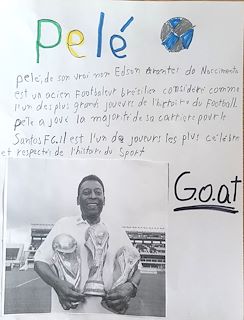 Pelé
Pelé, de son vrai nom Edson Arantes do Nascimento
est un acien Footballeur brésilien considéré comme
l'un des plus grands joueurs de l'histoire du Football.
Pelé a joué la majorité de sa carrière pour le
Santos FC. Il est l'un de joueurs les plus célèbre
et respecté de l'histoire du Sport
G.o.a.t